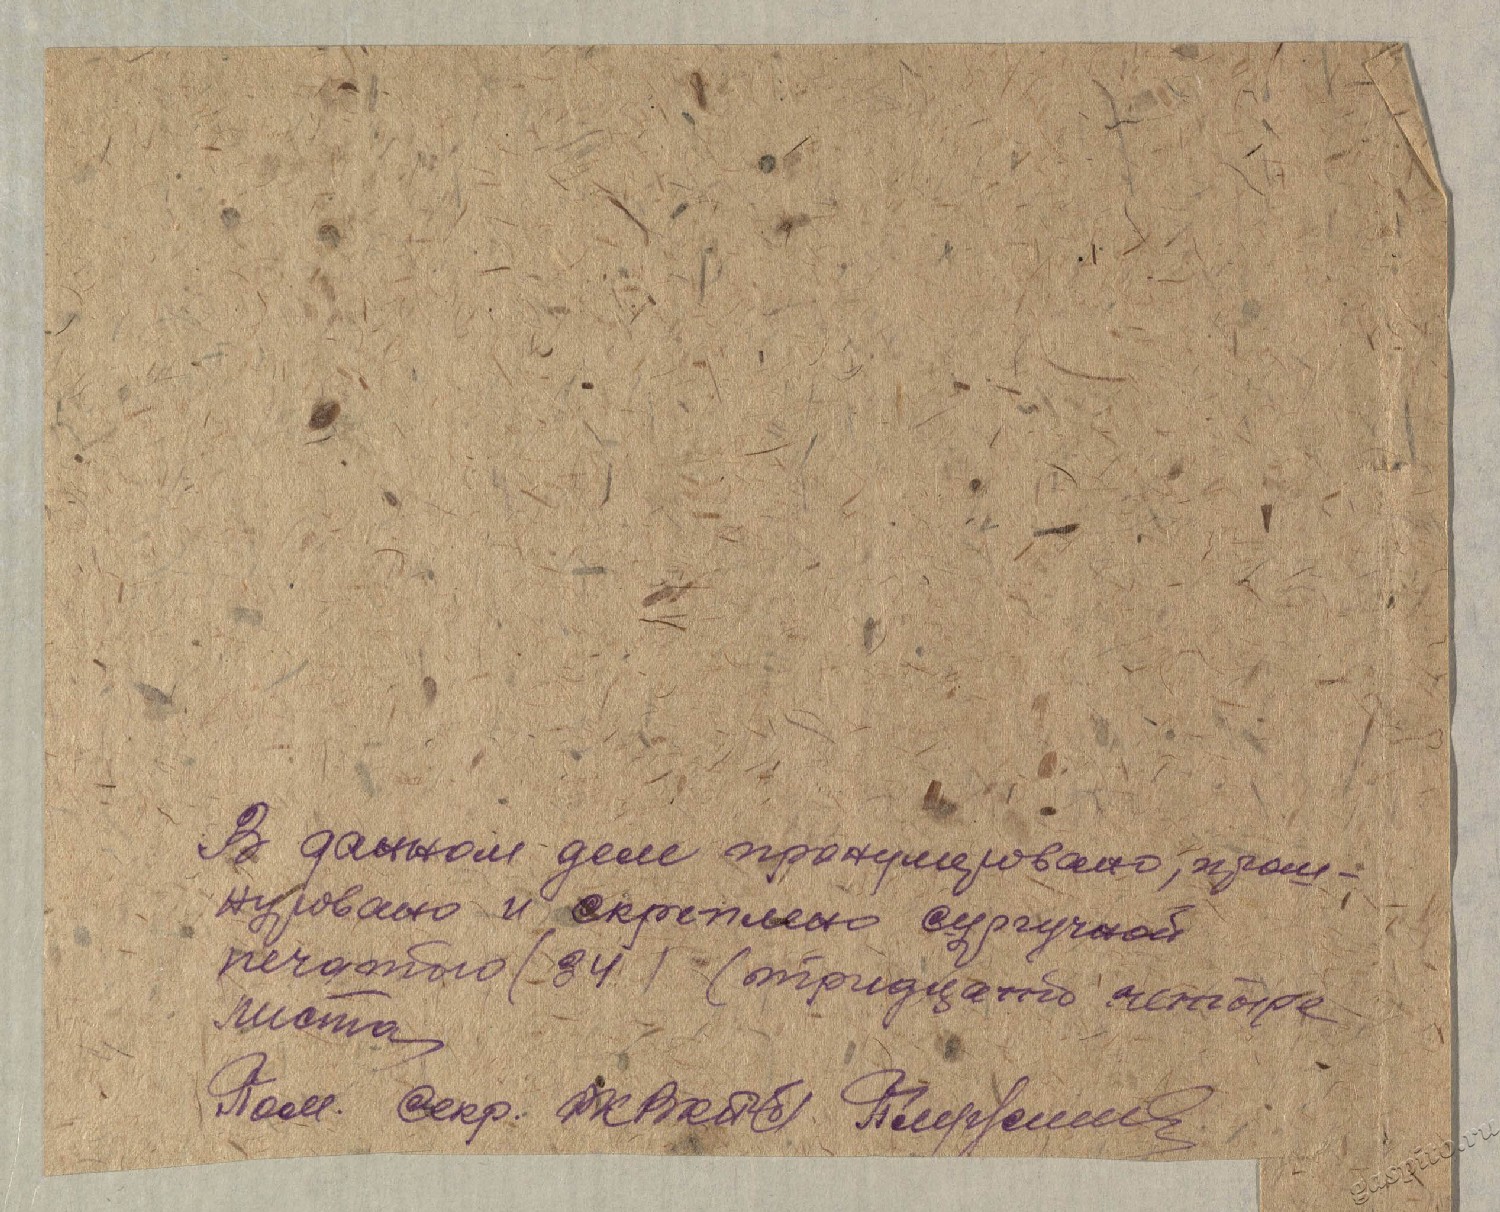 В данном деле пронумеровано, прош-
нуровано и скреплено сургучной
печатью (34) (тридцать четыре
листа)
Пом. секр. РКВКП(б)
gaspito.ru